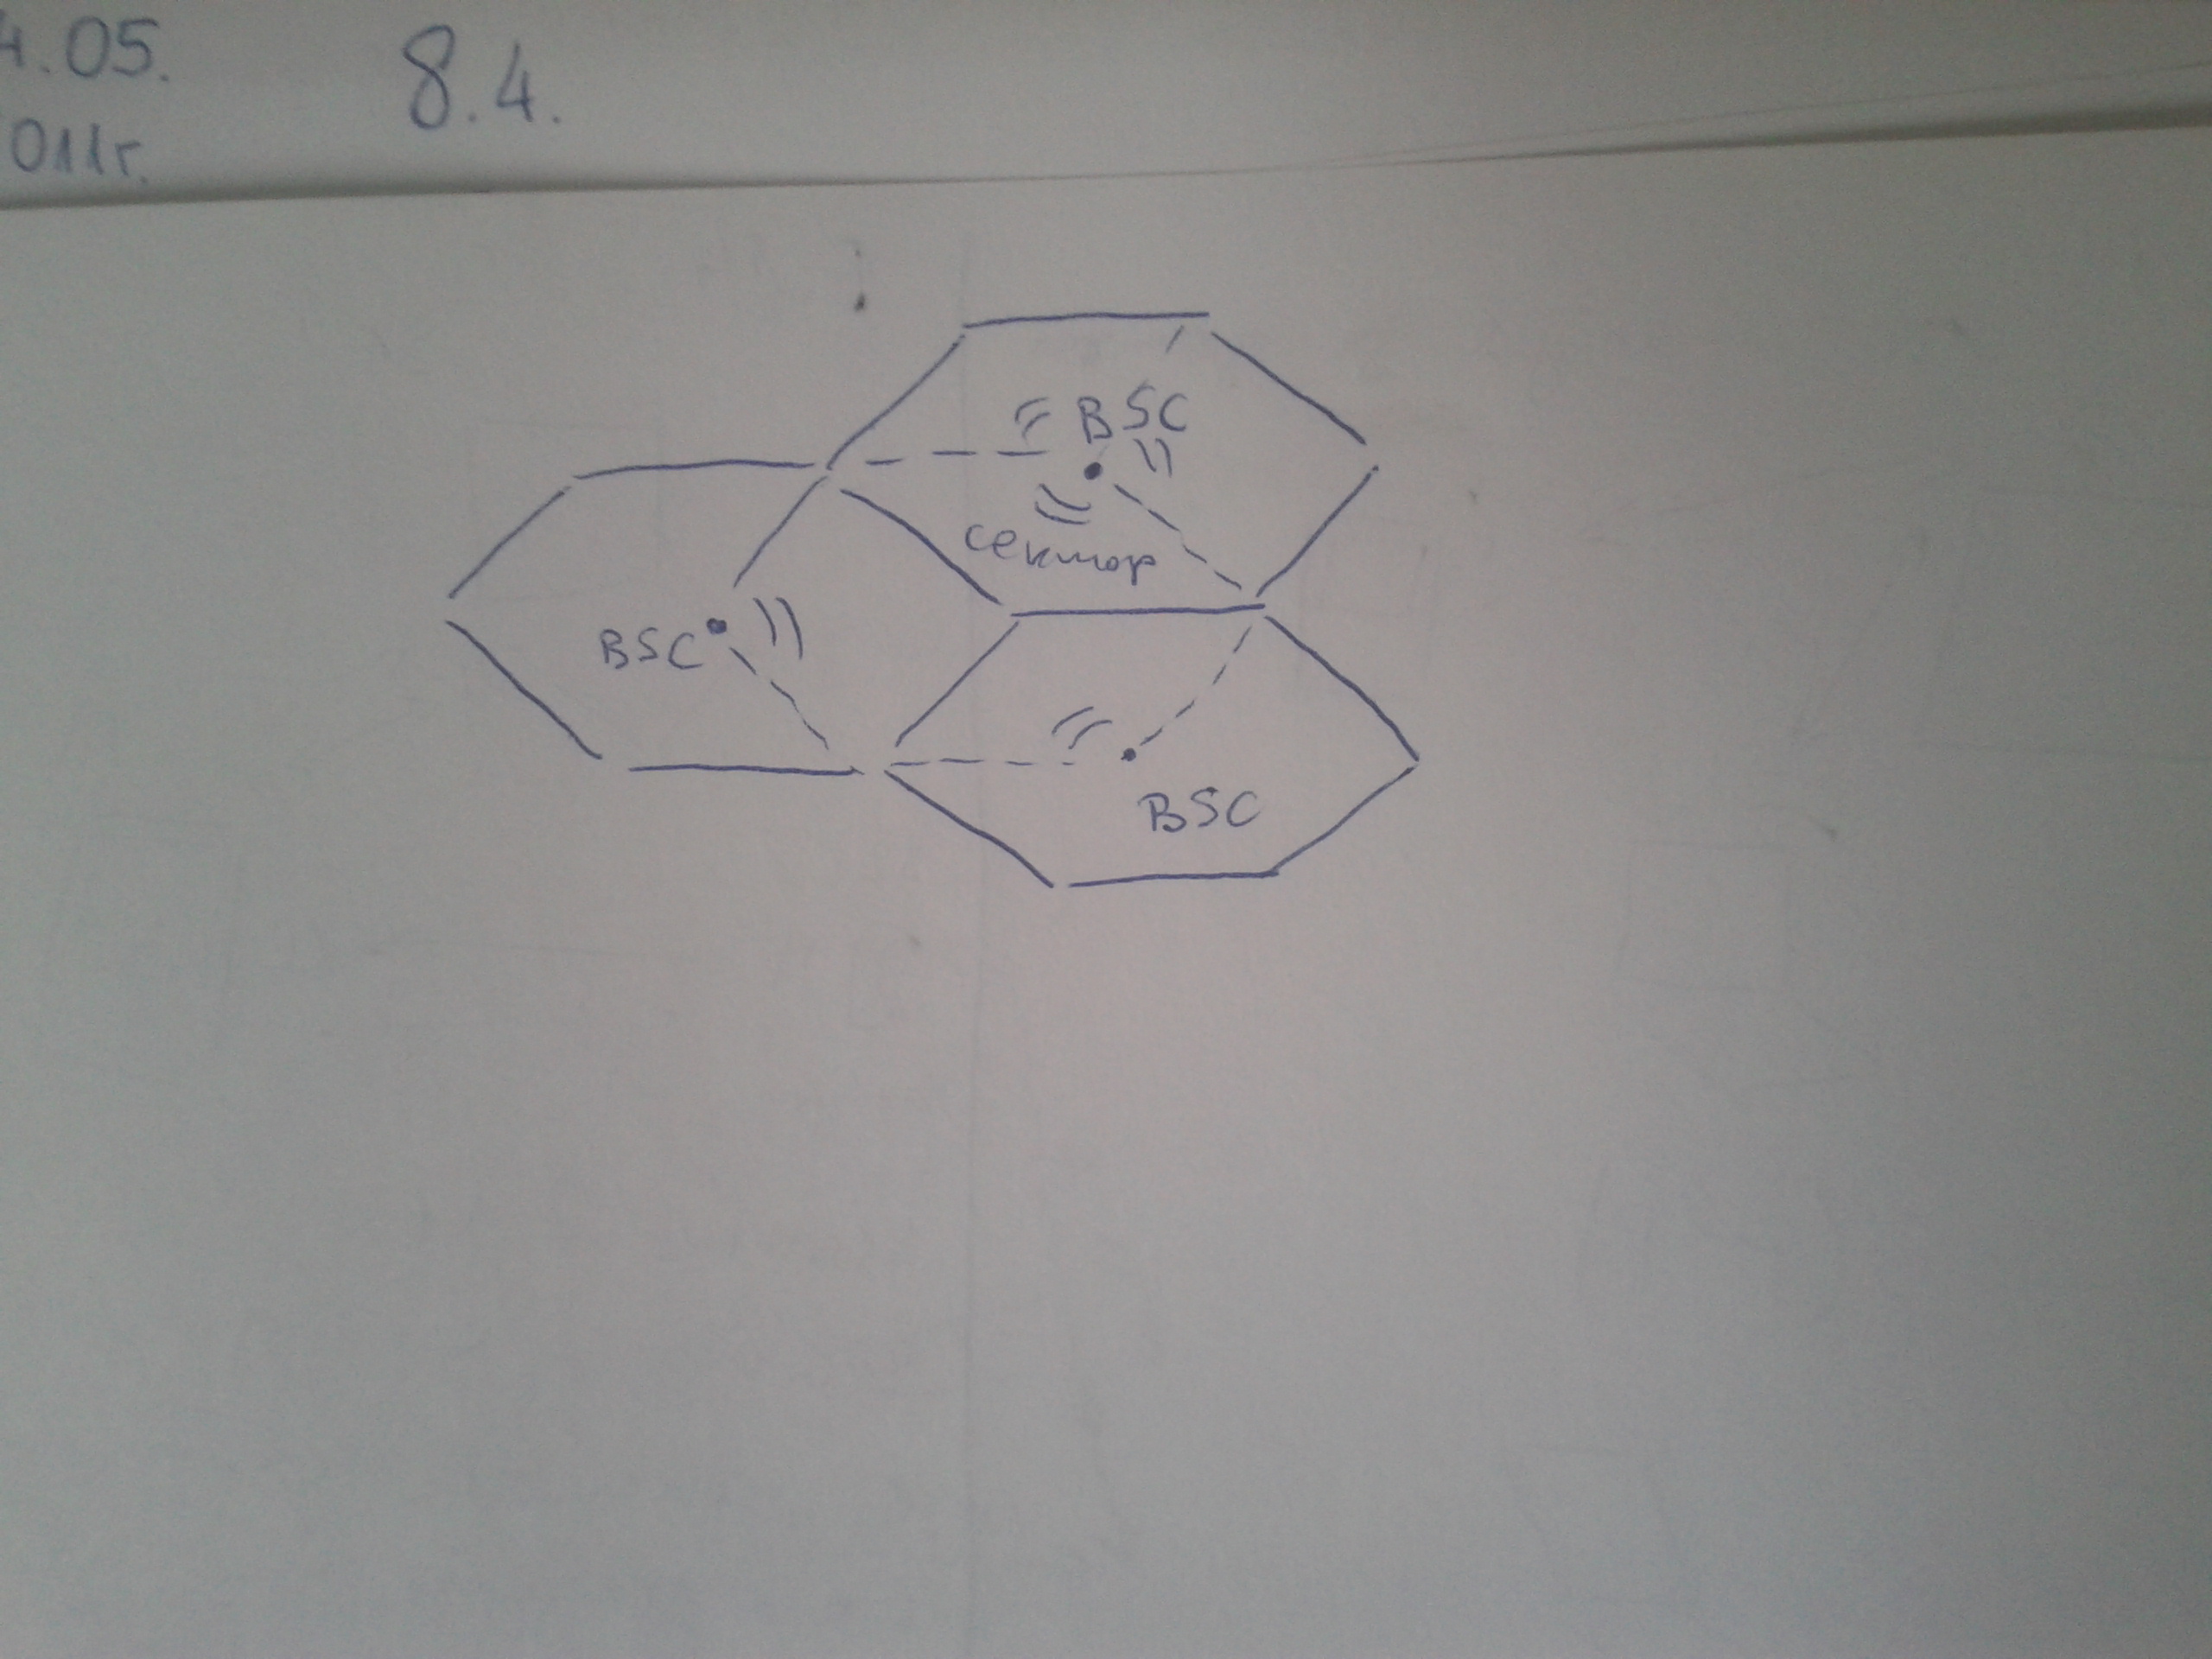 4.05.
8.4.
011г.
BSC
сектор
BSC
BSC